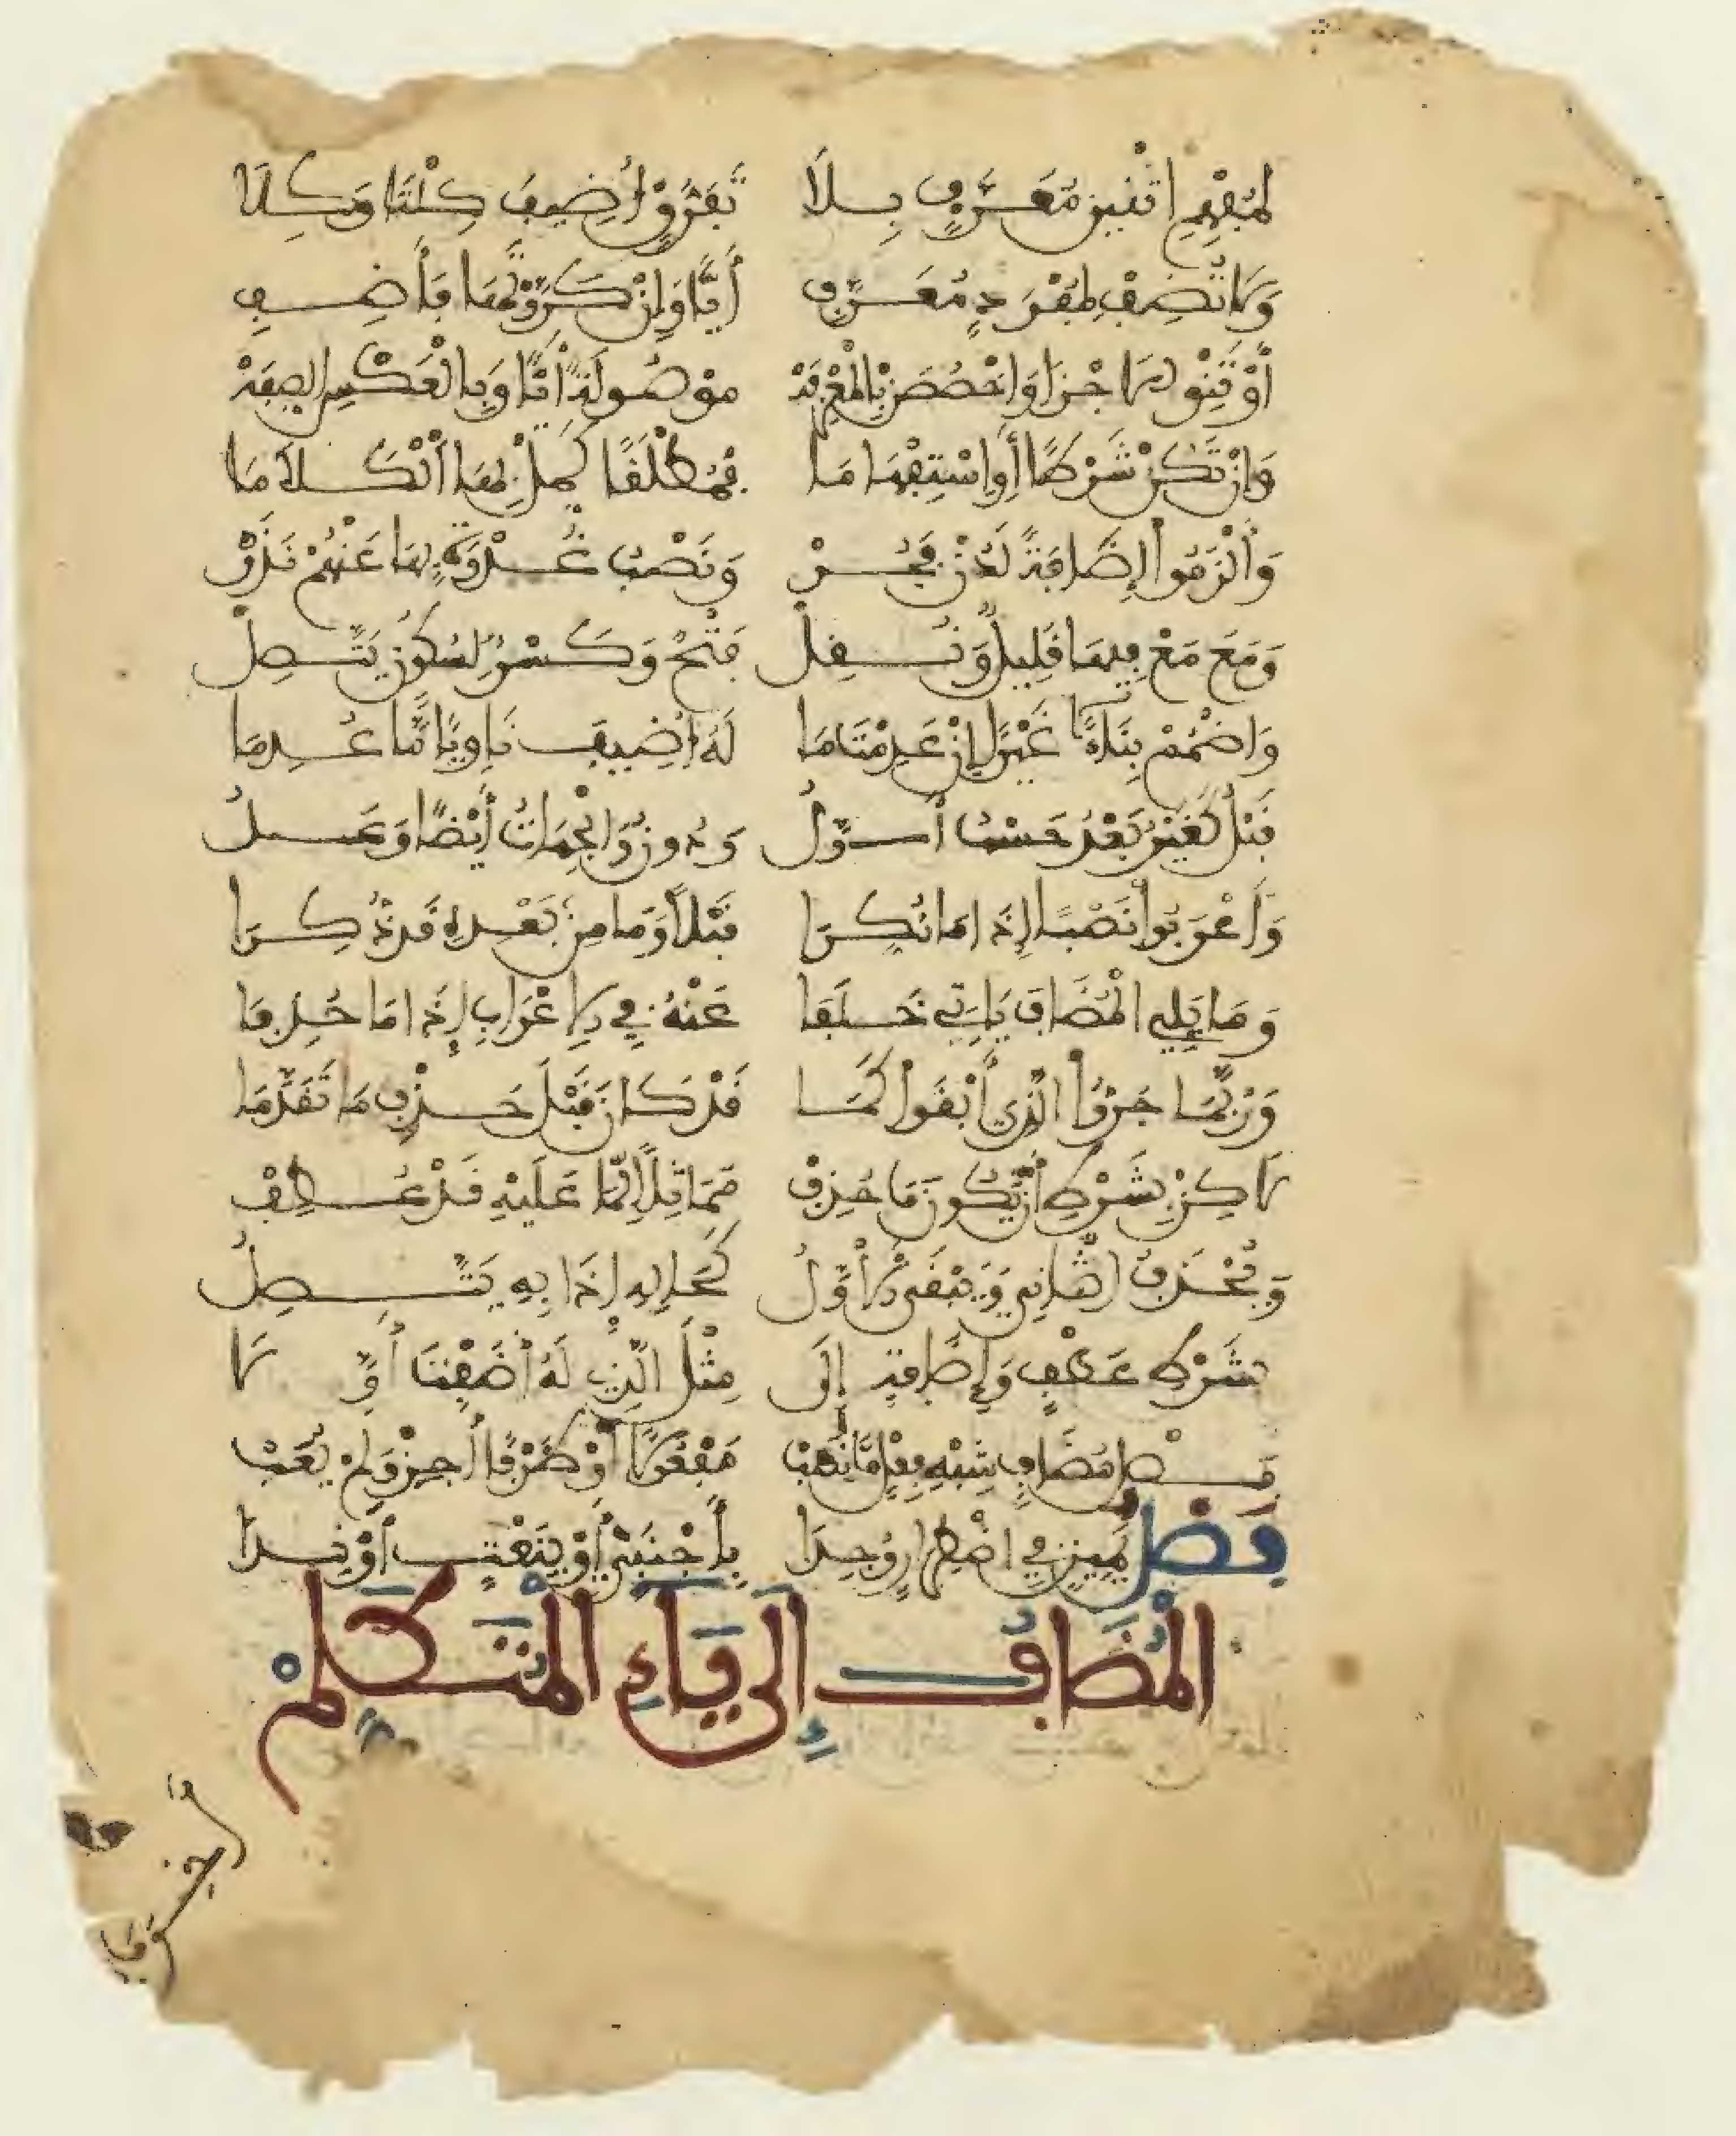 لِمُفْهِمِ اثْنَيْنِ مُعَرَّفٍ بِلَا تَفَرُّقٍ أُضِيفَ كِلْتَا وَكِلَا
وَلَا تُضِفْ لِمُفْرَدٍ مُعَرَّفِ أَيًّا وَإِنْ كَرَّرْتَهَا فَأَضِفِ
أَوْ تَنْوِ الَاجْزَا وَاخْصُصَنْ بِالْمَعْرِفَهْ مَوْصُولَةً أَيًّا وَبِالْعَكْسِ الصِّفَهْ
وَإِنْ تَكُنْ شَرْطًا أَوِ اسْتِفْهَامَا فَمُطْلَقًا كَمِّلْ بِهَا الْكَلَامَا
وَأَلْزَمُوا إِضَافَةً لَدُنْ فَجَرْ وَنَصْبُ غُدْوَةٍ بِهَا عَنْهُمْ نَدَرْ
وَمَعَ مَعْ فِيهَا قَلِيلٌ وَنُقِلْ فَتْحٌ وَكَسْرٌ لِسُكُونٍ يَتَّصِلْ
وَاضْمُمْ بِنَاءً غَيْرًا إِنْ عَدِمْتَ مَا لَهُ أُضِيفَ نَاوِيًا مَّا عُدِمَا
قَبْلُ كَغَيْرُ بَعْدُ حَسْبُ أَوَّلُ وَدُونُ وَالْجِهَاتُ أَيْضًا وَعَلُ
وَأَعْرَبُوا نَصْبًا إِذَا مَا نُكِّرَا قَبْلًا وَمَا مِنْ بَعْدِهِ قَدْ ذُكِرَا
وَمَا يَلِي الْمُضَافَ يَاتِي خَلَفَا عَنْهُ فِي الِاعْرَابِ إِذَا مَا حُذِفَا
وَرُبَّمَا جَرُّوا الَّذِي أَبْقَوْا كَمَا قَدْ كَانَ قَبْلَ حَذْفِ مَا تَقَدَّمَا
لَاكِنْ بِشَرْطِ أَنْ يَكُونَ مَا حُذِفْ مُمَاثِلًا لِمَا عَلَيْهِ قَدْ عُطِفْ
وَيُحْذَفُ الثَّانِي وَيَبْقَى الْأَوَّلُ كَحَالِهِ إِذَا بِهِ يَتَّصِلُ
بِشَرْطِ عَطْفٍ وَإِضَافَةٍ إِلَى مِثْلِ الَّذِي لَهُ أَضَفْتَ أَوَّلَا
فَصْلَ مُضَافٍ شِبْهِ فِعْلٍ مَا نَصَبْ مَفْعُولًا أَوْ ظَرْفًا أَجِزْ وَلَمْ يُعَبْ
فَصْلُ يَمِينٍ فِي اضْطِرَارٍ وُجِدَا بِأَجْنَبِيٍّ أَوْ بِنَعْتٍ أَوْ نِدَا
الْمُضَافُ إِلَى يَاءِ الْمُتَكَلِّمْ